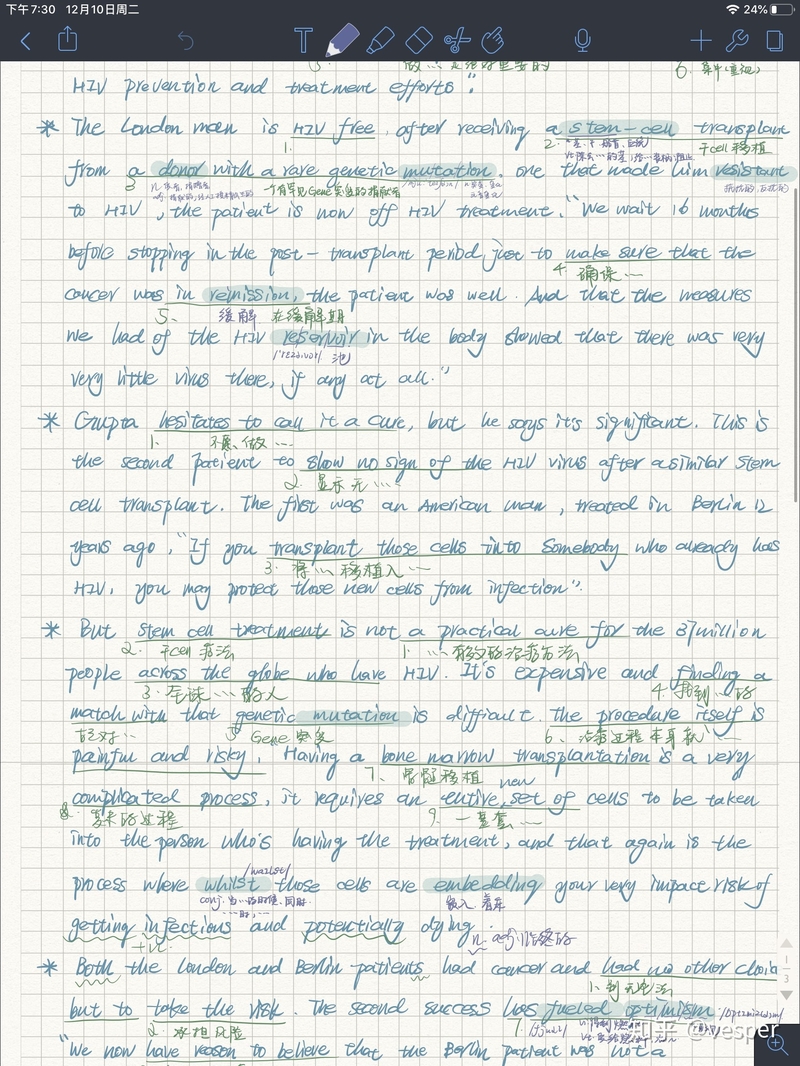 下午7:30 12月10日周二
24%
HIV prevention and treatment efforts".
* The London man is HIV free, after receiving a stem-cell transplant
1. 2. 干cell移植
from a donor with a rare genetic mutation, one that made him resistant
3 一个有罕见Gene突变的捐献者
to HIV, the patient is now off HIV treatment. "We wait 16 months
before stopping in the post-transplant period, just to make sure that the
4 确保…
cancer was in remission, the patient was well. And that the measures
5、 缓解 在缓解期
we had of the HIV reservoir in the body showed that there was very
池
very little virus there, if any at all."
* Gupta hesitates to call it a cure, but he says it's significant. This is
1. 不愿、做…
the second patient to show no sign of the HIV virus after a similar stem
2. 显示无…
cell transplant. The first was an American man, treated in Berlin 12
years ago, "If you transplant those cells into somebody who already has
3. 将…移植入…
HIV, you may protect those new cells from infection".
* But stem cell treatment is not a practical cure for the 37 million
2. 干cell疗法 1. …有效的治疗方法
people across the globe who have HIV. It's expensive and finding a
3. 全球…的人 4. 找到…的
match with that genetic mutation is difficult. the procedure itself is
配对… 5 Gene突变 6. 治疗过程本身就…
painful and risky, Having a bone marrow transplantation is a very
7、骨髓移植 new
complicated process, it requires an entire set of cells to be taken
8. 复杂的过程 9. 一整套…
into the person who's having the treatment, and that again is the
process where whilst those cells are embedding your very impact risk of
嵌入
getting infections and potentially dying.
+n.
* Both the London and Berlin patients had cancer and had no other choice
1. 别无他法
but to take the risk. The second success has fueled optimism.
2. 承担风险
"We now have reason to believe that the Berlin patient was not a
1
3
知乎 @vesper